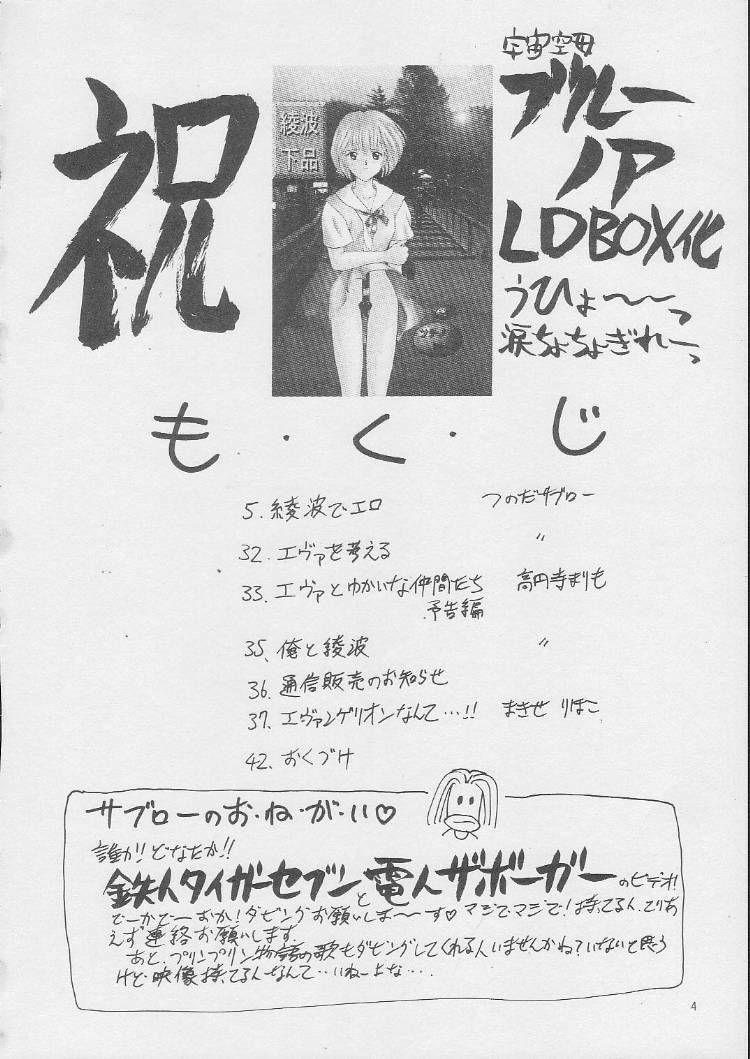 祝
綾波
下品
宇宙空母
ブルー
ノア
LDBOX化
うひょ〜〜っ
涙ちょちょぎれーっ
も・く・じ
5. 綾波でエロ つのだサブロー
32. エヴァを考える 〃
33. エヴァとゆかいな仲間たち 高円寺まりも
予告編
35. 俺と綾波 〃
36. 通信販売のお知らせ
37. エヴァンゲリオンなんて…!! まきせ りほこ
42. おくづけ
サブローのお・ね・が・い♡
誰か!どなたか!!
鉄人タイガーセブンと電人ザボーガーのビデオ!
どーかどーおか!ダビングお願いしま〜〜す♡マジでマジで!持ってる人、とりあ
えず連絡お願いします
あと、プリンプリン物語の歌もダビングしてくれる人いませんかね?いないと思う
けど映像持ってる人なんて…いねーよな….
4